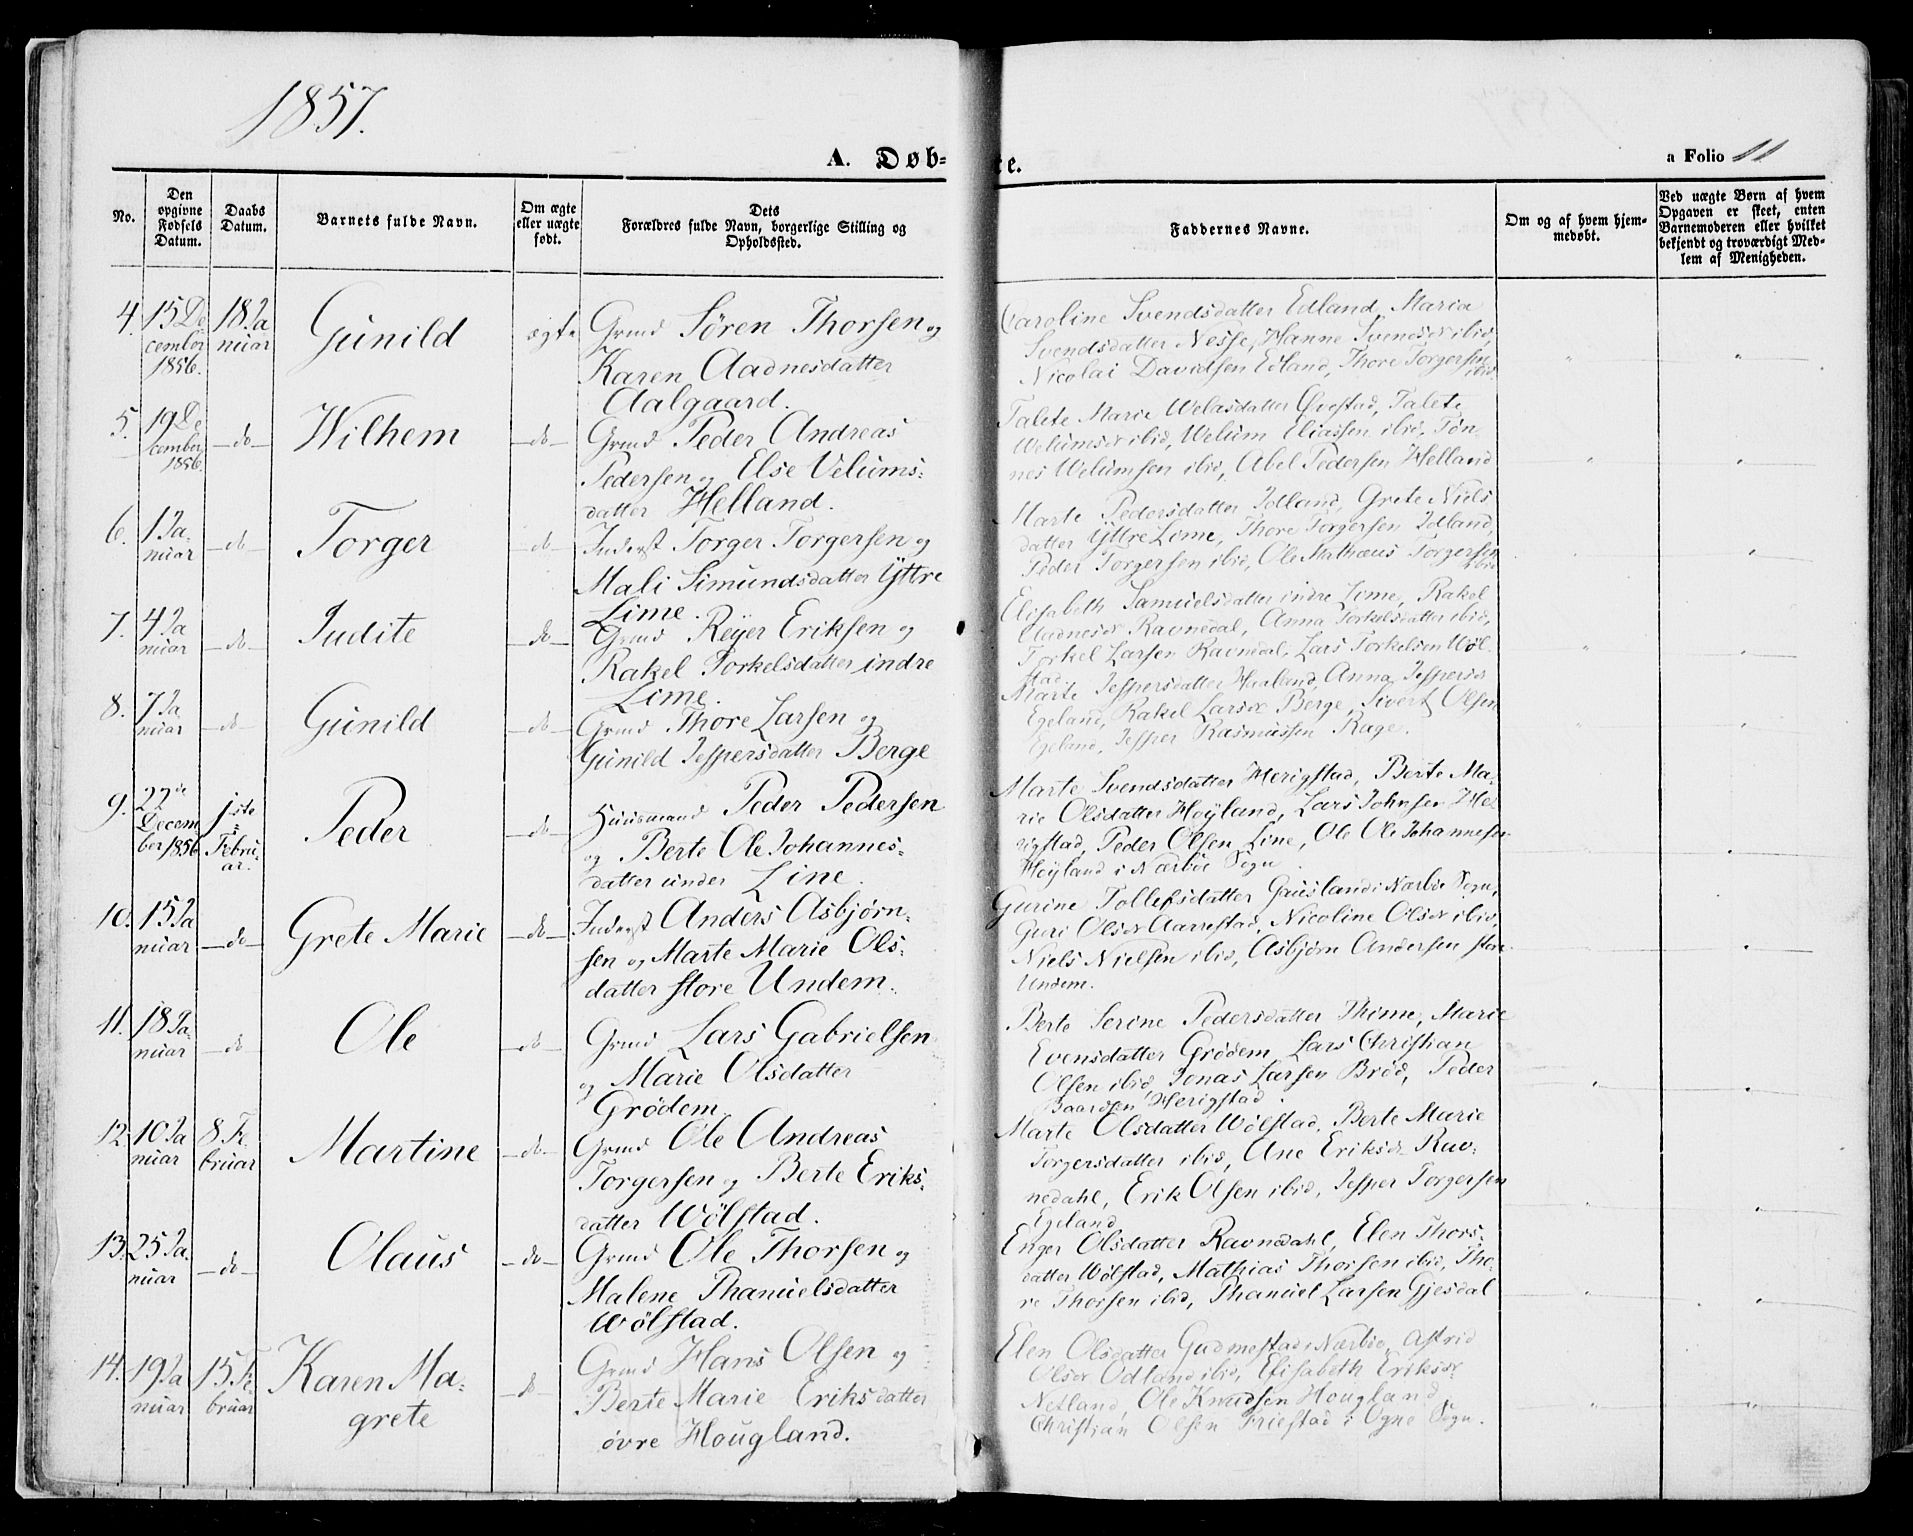 1857.
A. Døb-
te.
a Folio 11
No.
Den opgivne Fødsels Datum.
Daabs Datum.
Barnets fulde Navn.
Om ægte eller uægte født.
Dets Forældres fulde Navn, borgerlige Stilling og Opholdssted.
Faddernes Navne.
Om og af hvem hjemmedøbt.
Ved uægte Børn af hvem Opgaven er skeet, enten Barnemoderen eller hvilket bekjendt og troværdigt Medlem af Menigheden.
4. 15 De 18 Ja Gunild ægte Grmd Søren Thorsen og
cember nuar
1856.
Karen Aadnesdatter
Aalgaard.
Caroline Svendsdatter Edland, Maria
Svendsdatter Nesse, Hanne Svendsdr ibid,
Nicolai Davidsen Edland, Thore Torgersen
ibid
5. 19 De -do- Wilhem -do- Grmd Peder Andreas
cember
1856.
Pedersen og Else Velums-
datter Helland.
Talete Marie Welasdatter Øvestad, Talete
Welumsdr ibid, Welum Eliassen ibid, Tøn-
nes Welumsen ibid, Abel Pedersen Helland
6. 1 Ja- -do- Torger -do- Inderst Torger Torgersen og
nuar
Mali Simundsdatter Yttre
Lime.
Marte Pedersdatter Idland, Grete Niels
datter Yttre Lime, Thore Torgersen Idland,
Peder Torgersen ibid, Ole Mathæus Torgersen
ibid
7. 4 Ja -do- Judite -do- Grmd Reyer Eriksen og
nuar
Rakel Torkelsdatter indre
Lime.
Elisabeth Samuelsdatter indre Lime, Rakel
Aadnesdr Ravnedal, Anna Torkelsdatter ibid,
Torkel Larsen Ravnedal, Lars Torkelsen Wøl-
stad
8. 7 Ja -do- Gunild -do- Grmd Thore Larsen og
nuar
Gunild Jespersdatter Berge
Marte Jespersdatter Haaland, Anna Jespersdr
Egeland, Rakel Larsdr Berge, Sivert Olsen
Egeland, Jesper Rasmussen Rage.
9. 22de 1ste Peder -do- Huusmand Peder Pedersen
Decem Febru-
ber 1856 ar.
og Berte Ole Johannes-
datter under Line.
Marte Svendsdatter Herigstad, Berte Ma-
rie Olsdatter Høyland, Lars Johnsen He-
rigstad, Peder Olsen Line, Ole Ole Johannesen
Høyland i Nærbøe Sogn
10. 15 Ja -do- Grete Marie -do- Inderst Anders Asbjørn-
nuar
sen og Marte Marie Ols-
datter store Undem.
Gurine Tollefsdatter Gruusland i Nærbø Sogn,
Guri Olsdr Aarrestad, Nicoline Olsdr ibid,
Niels Nielsen ibid, Asbjørn Andersen store
Undem.
11. 18 Ja- -do- Ole -do- Grmd Lars Gabrielsen
nuar
og Marie Olsdatter
Grødem
Berte Serine Pedersdatter Thime, Marie
Evensdatter Grødem, Lars Christian
Olsen ibid, Jonas Larsen Brød, Peder
Baardsen Herigstad.
12. 10 Ja 8 Fe Martine -do- Grmd Ole Andreas
nuar bruar
Torgersen og Berte Eriks-
datter Wølstad.
Marte Olsdatter Wølstad, Berte Marie
Torgersdatter ibid, Ane Eriksdr Rav-
nedahl, Erik Olsen ibid, Jesper Torgersen
Egeland
13. 25 Ja- -do- Olaus -do- Grmd Ole Thorsen og
nuar
Malene Thanuelsdatter
Wølstad.
Enger Olsdatter Ravnedahl, Elen Thors-
datter Wølstad, Mathias Thorsen ibid, Tho-
re Thorsen ibid, Thanuel Larsen Gjesdal
14. 19 Ja 15 Fe Karen Ma- -do- Grmd Hans Olsen og
nuar bruar grete
Berte Marie Eriksdatter
øvre Hougland.
Elen Olsdatter Gudmestad i Nærbø, Astrid
Olsdr Odland ibid, Elisabeth Eriksdr
Netland, Ole Knudsen Hougland
Christian Olsen Friestad i Ogne Sogn.